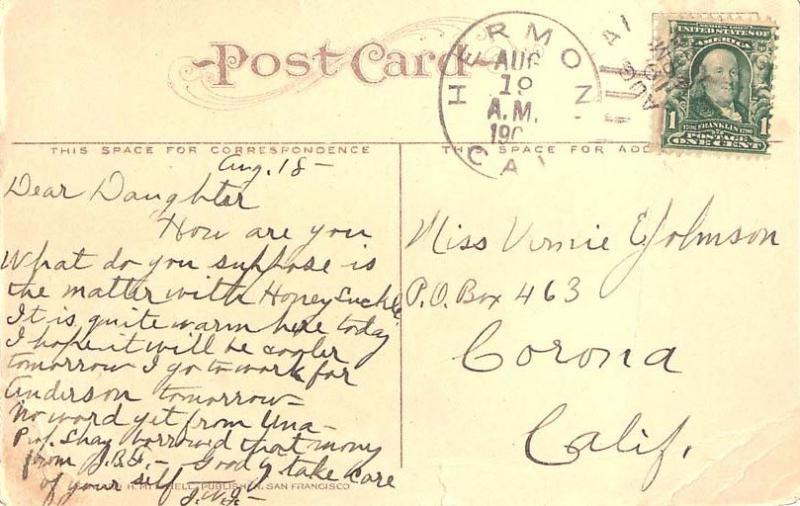 Post Card
HERMON
AUG
19
A.M.
190
CAL
SERIES 1902
UNITED STATES OF
AMERICA
1706 FRANKLIN 1790
1 POSTAGE 1
ONE CENT
THIS SPACE FOR CORRESPONDENCE
THIS SPACE FOR ADD
Aug. 18 -
Dear Daughter
How are you
What do you suppose is
the matter with Honey Suckle
It is quite warm here today
I hope it will be cooler
tomorrow I go to work for
Anderson tomorrow -
No word yet from Una -
Prof. Shay borrowed that money
from J.B.F. - Good by take care
of your self J.W.J -
PUBLISHER, SAN FRANCISCO
Miss Vernie E Johnson
P.O. Box 463
Corona
Calif.